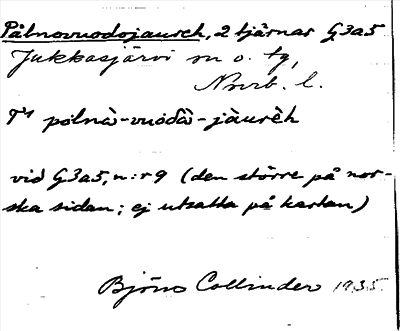 Pålnovuodojaureh, 2 tjärnar G3a5
Jukkasjärvi sn o. tg,
Norrb. l.
Tᵐ pɷlnà-vuoδ̀à-jàurèh
vid G3a5, n:r 9 (den större på nor-
ska sidan; ej utsatta på kartan)
Björn Collinder 1935.